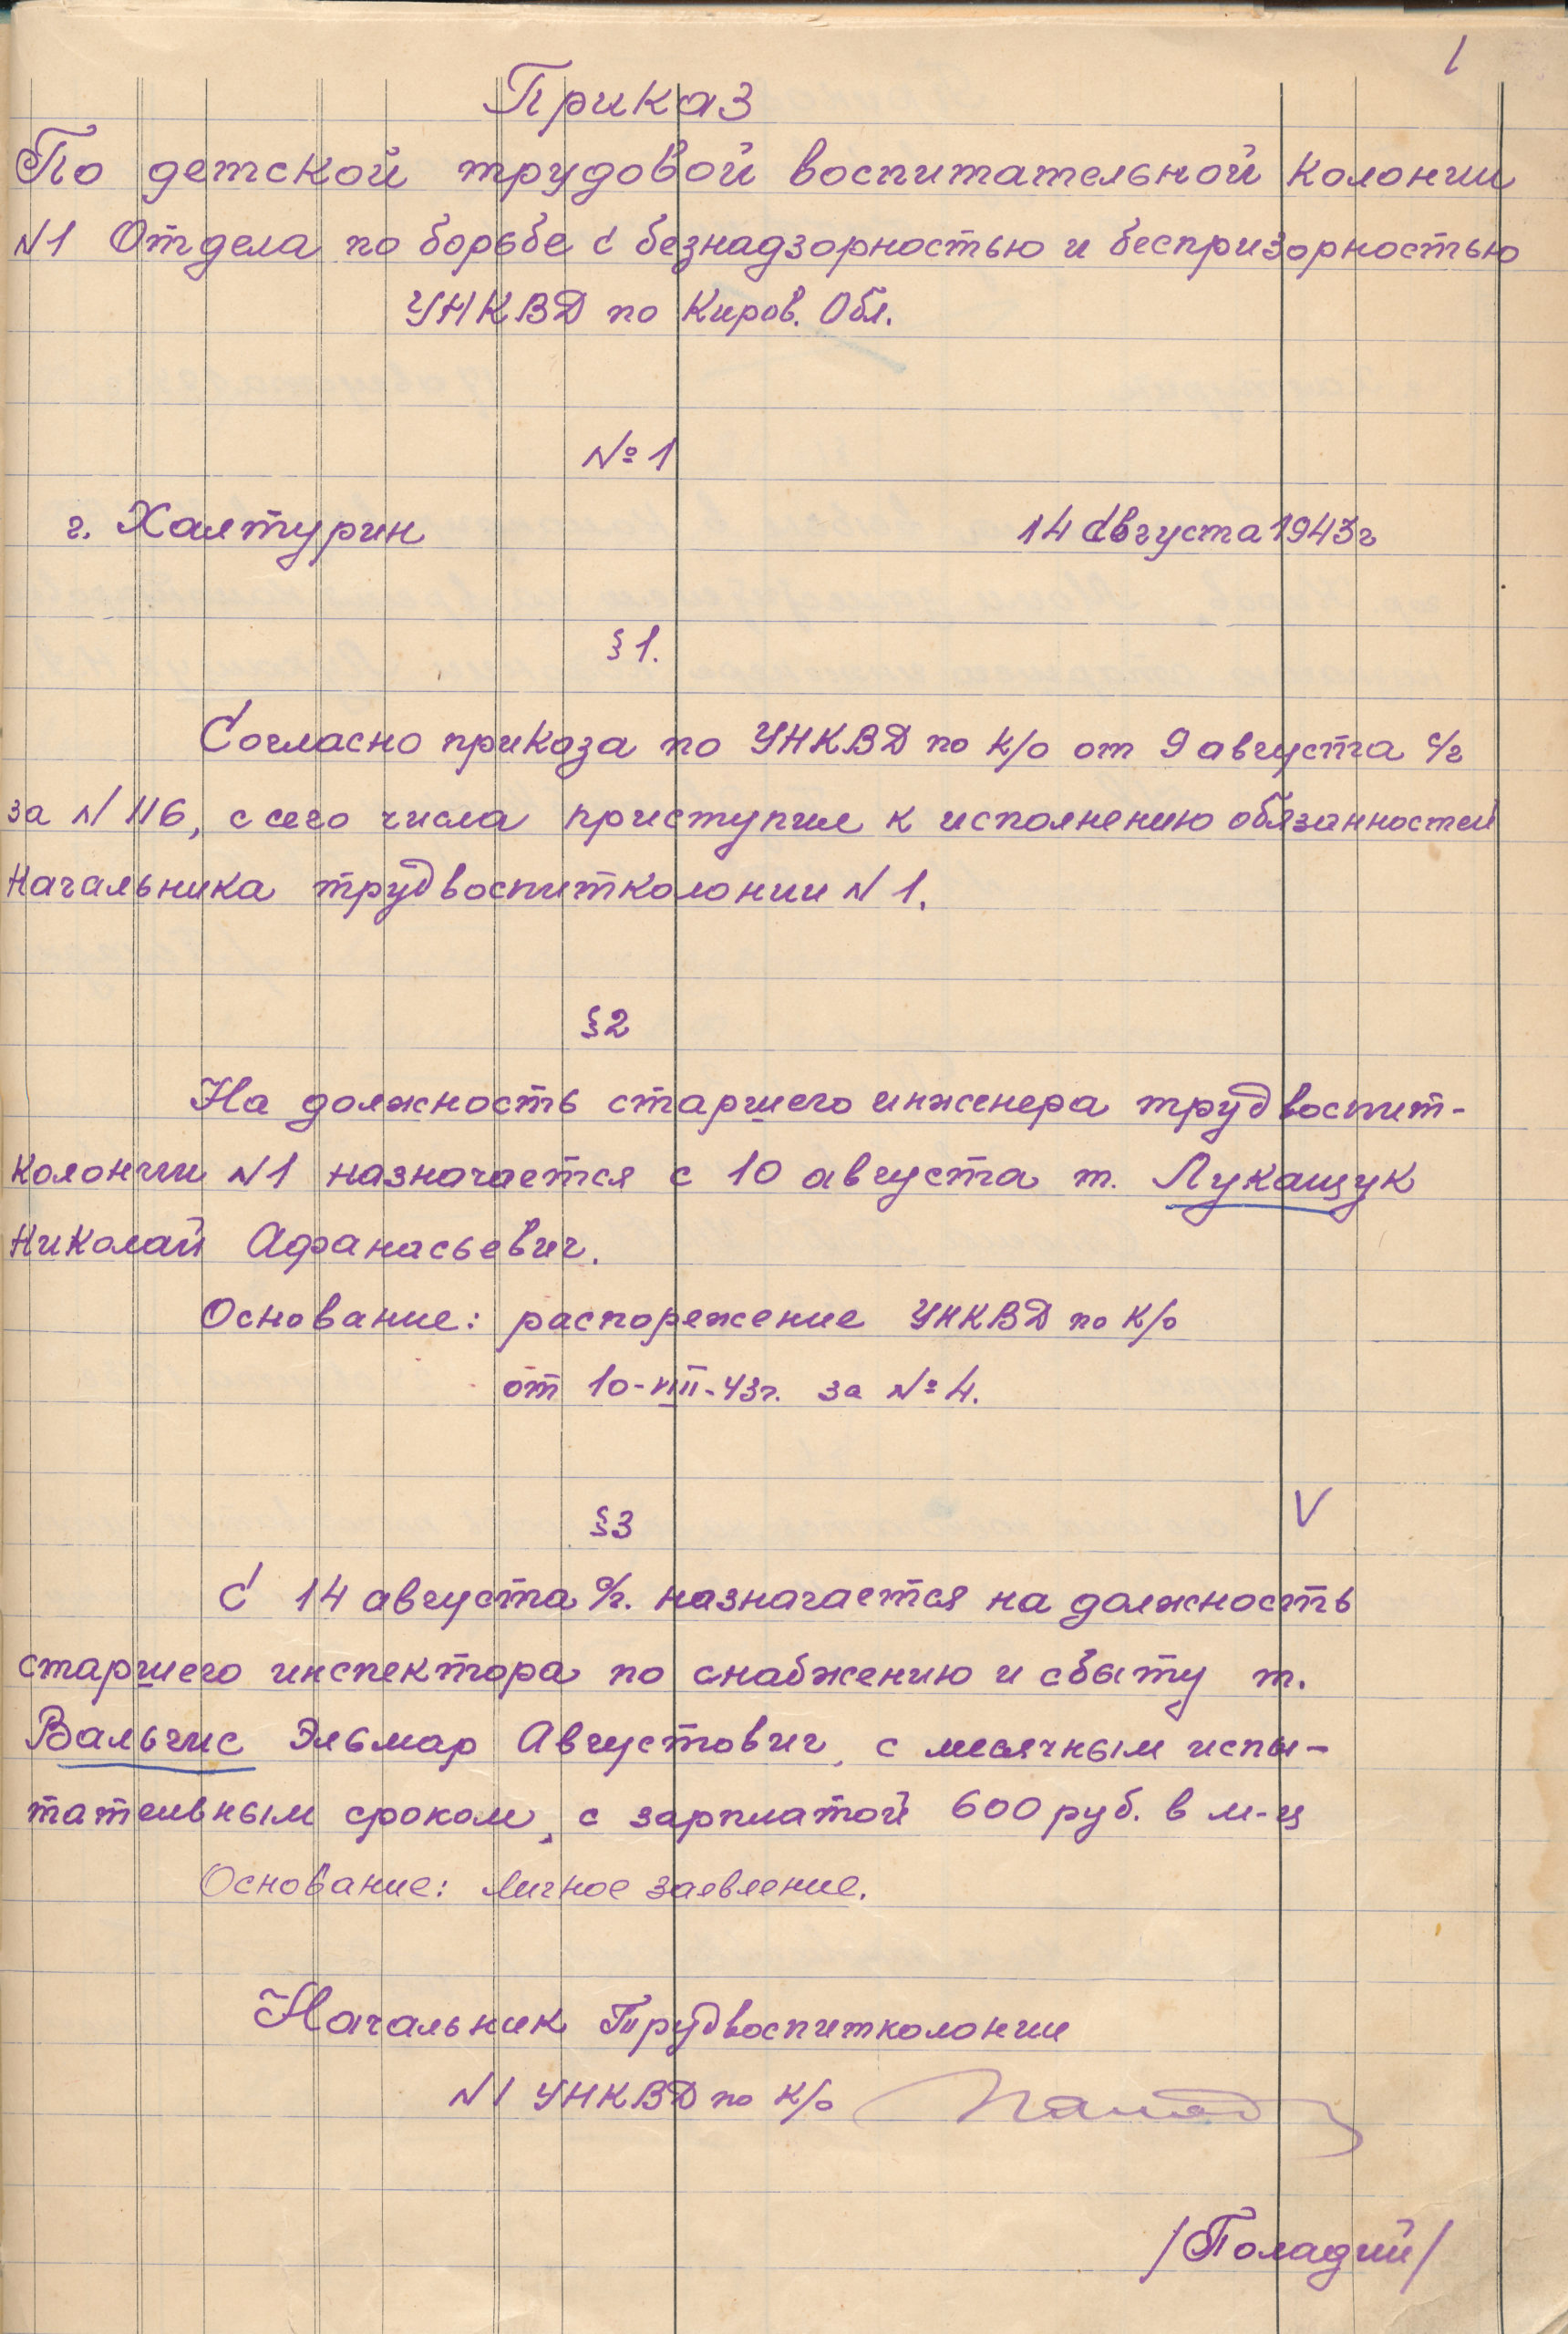 1
Приказ
По детской трудовой воспитательной колонии
N1 Отдела по борьбе с безнадзорностью и беспризорностью
УНКВД по Киров. Обл.
№1
г. Халтурин 14 августа 1943г
§1.
Согласно приказа по УНКВД по К/о от 9 августа с/г
за N 116, с сего числа приступил к исполнению обязанностей
начальника трудвоспитколонии N1.
§2
На должность старшего инженера трудвоспит-
колонии N1 назначается с 10 августа т. Лукащук
Николай Афанасьевич.
Основание: распорежение УНКВД по К/о
от 10-VIII-43г. за №4.
V
§3
С 14 августа с/г. назначается на должность
старшего инспектора по снабжению и сбыту т.
Вальчис Эльмар Августович, с месячным испы-
тательным сроком, с зарплатой 600 руб. в м-ц
Основание: личное заявление.
Начальник Трудвоспитколонии
N1 УНКВД по К/о
/Поладий/